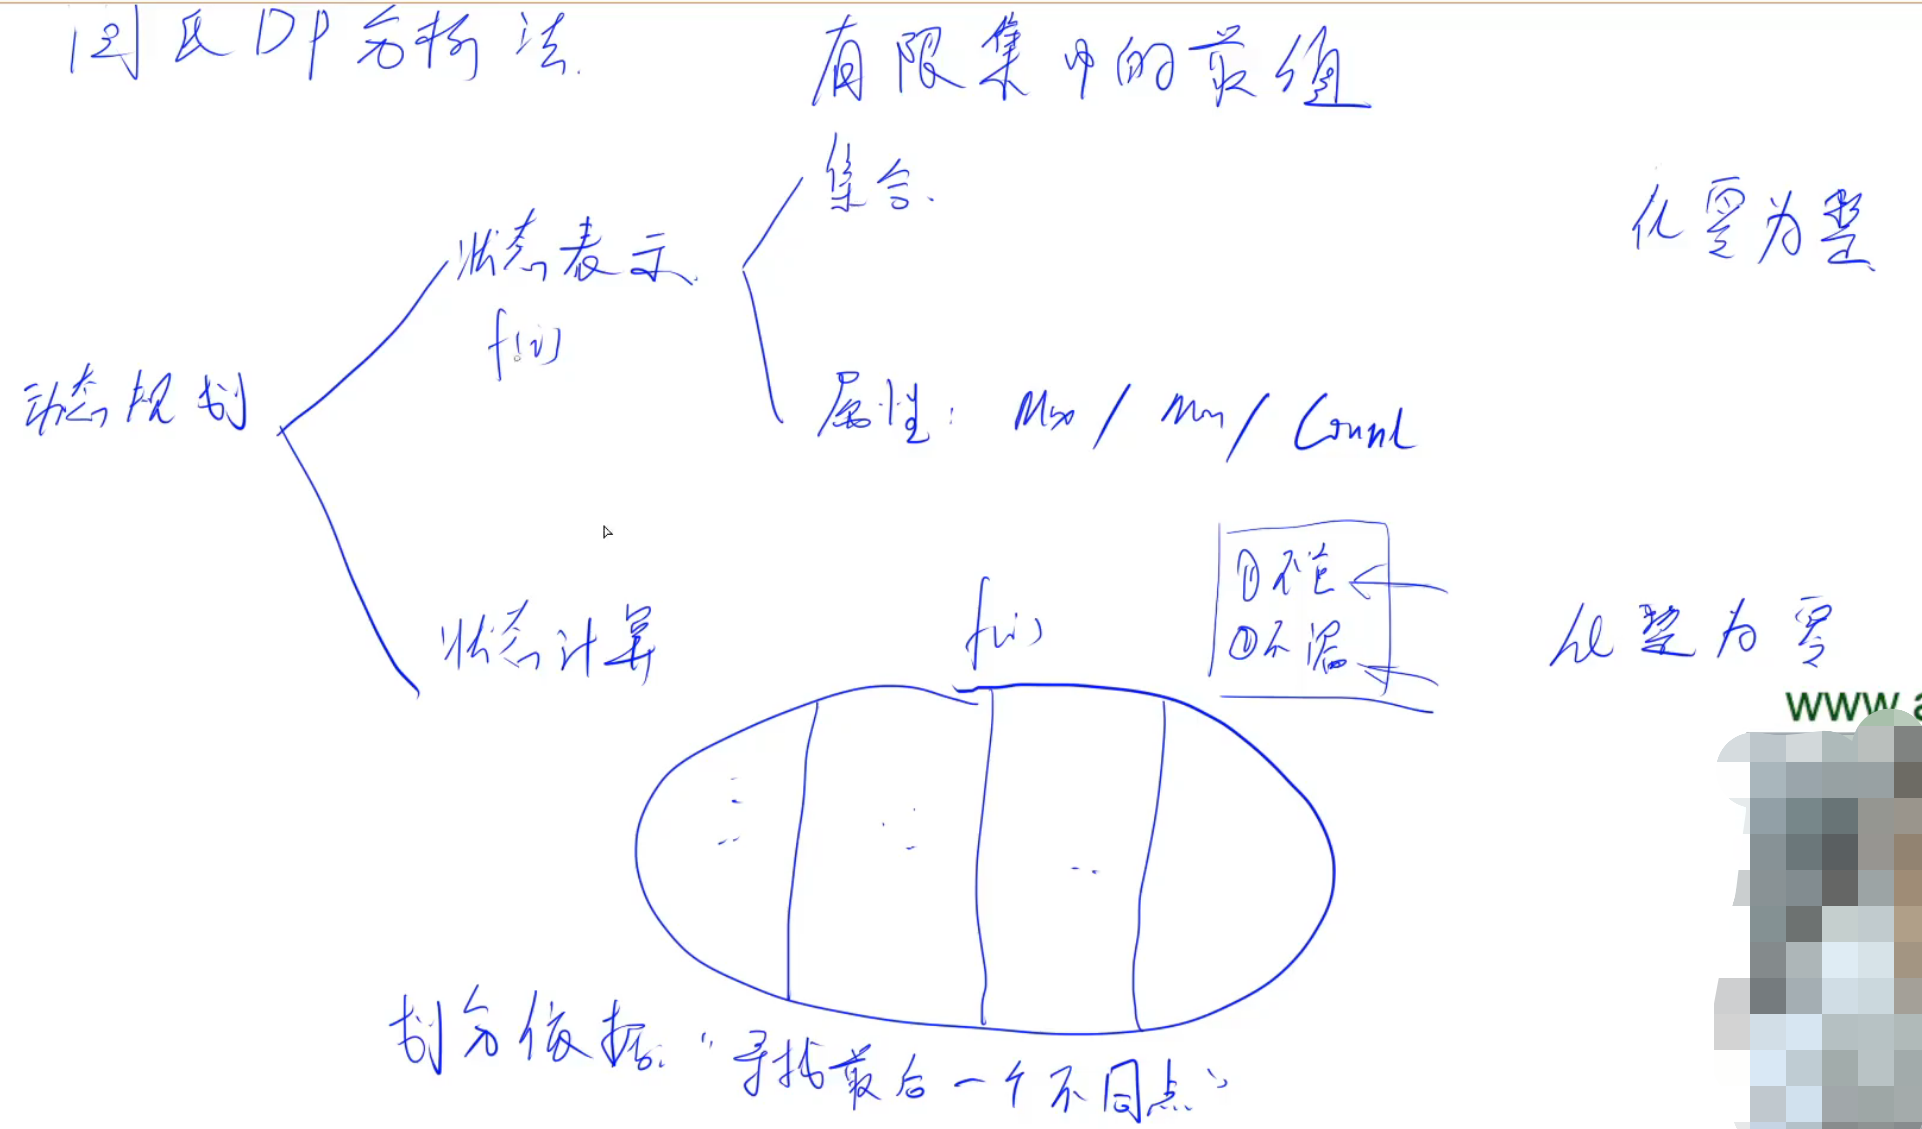 闫氏DP分析法.
有限集中的最值
集合.
化零为整
状态表示.
f(i)
动态规划
属性: Max / Min / Count
①不重
②不漏
f(i)
状态计算
化整为零
www.a
划分依据: "寻找最后一个不同点"